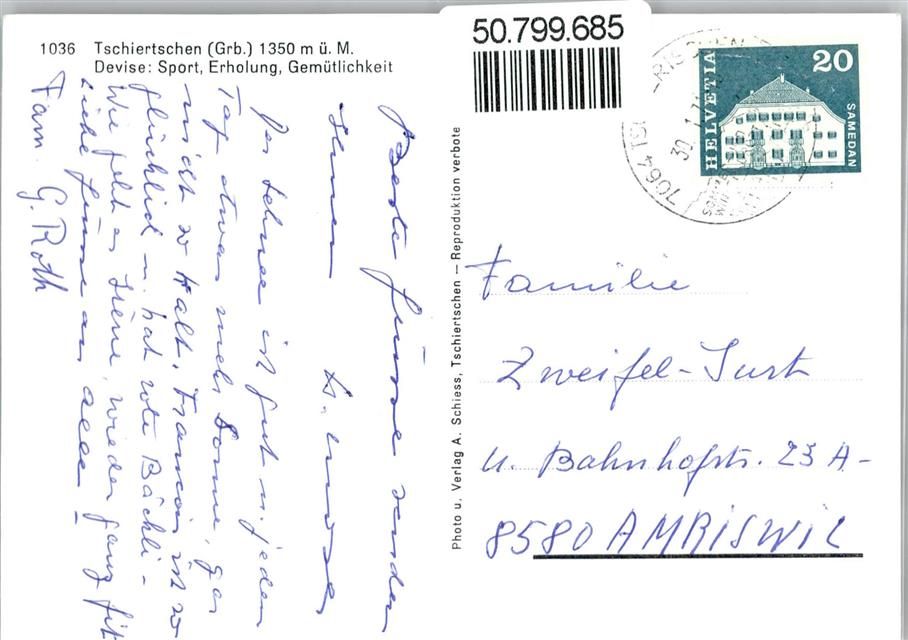 1036 Tschiertschen (Grb.) 1350 m ü. M.
Devise: Sport, Erholung, Gemütlichkeit
50.799.685
HELVETIA
20
SAMEDAN
7064 TSCHIERTSCHEN
Photo u. Verlag A. Schiess, Tschiertschen — Reproduktion verbote
Beste Grüsse senden
Ihnen
Der Schnee ist gut u. jeden
Tag etwas mehr Sonne, gar
nicht so kalt. François ist so
glücklich u. hat rote Bäckli -
Wie geht es Irene, wieder ganz fit
Liebe Grüsse an alle
Fam. G. Roth
Familie
Zweifel-Sust
u. Bahnhofstr. 23 A-
8580 AMRISWIL